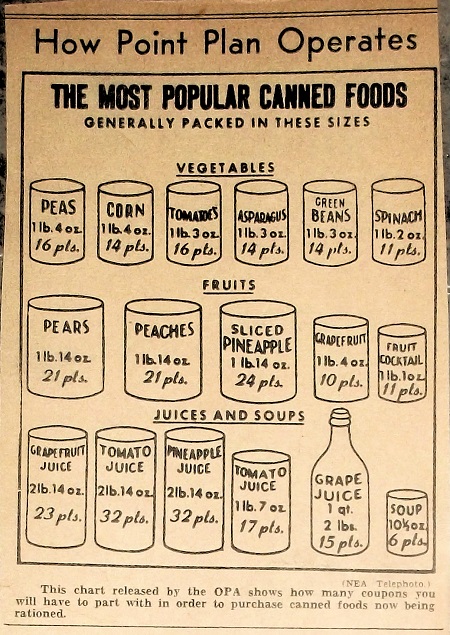 How Point Plan Operates
THE MOST POPULAR CANNED FOODS
GENERALLY PACKED IN THESE SIZES
VEGETABLES
PEAS
1 lb. 4 oz.
16 pts.
CORN
1 lb. 4 oz.
14 pts.
TOMATOES
1 lb. 3 oz.
16 pts.
ASPARAGUS
1 lb. 3 oz.
14 pts.
GREEN
BEANS
1 lb. 3 oz.
14 pts.
SPINACH
1 lb. 2 oz.
11 pts.
FRUITS
PEARS
1 lb. 14 oz.
21 pts.
PEACHES
1 lb. 14 oz.
21 pts.
SLICED
PINEAPPLE
1 lb. 14 oz.
24 pts.
GRAPEFRUIT
1 lb. 4 oz.
10 pts.
FRUIT
COCKTAIL
1 lb. 1 oz.
11 pts.
JUICES AND SOUPS
GRAPEFRUIT
JUICE
2 lb. 14 oz.
23 pts.
TOMATO
JUICE
2 lb. 14 oz.
32 pts.
PINEAPPLE
JUICE
2 lb. 14 oz.
32 pts.
TOMATO
JUICE
1 lb. 7 oz.
17 pts.
GRAPE
JUICE
1 qt.
2 lbs.
15 pts.
SOUP
10½ oz.
6 pts.
(NEA Telephoto.)
This chart released by the OPA shows how many coupons you
will have to part with in order to purchase canned foods now being
rationed.